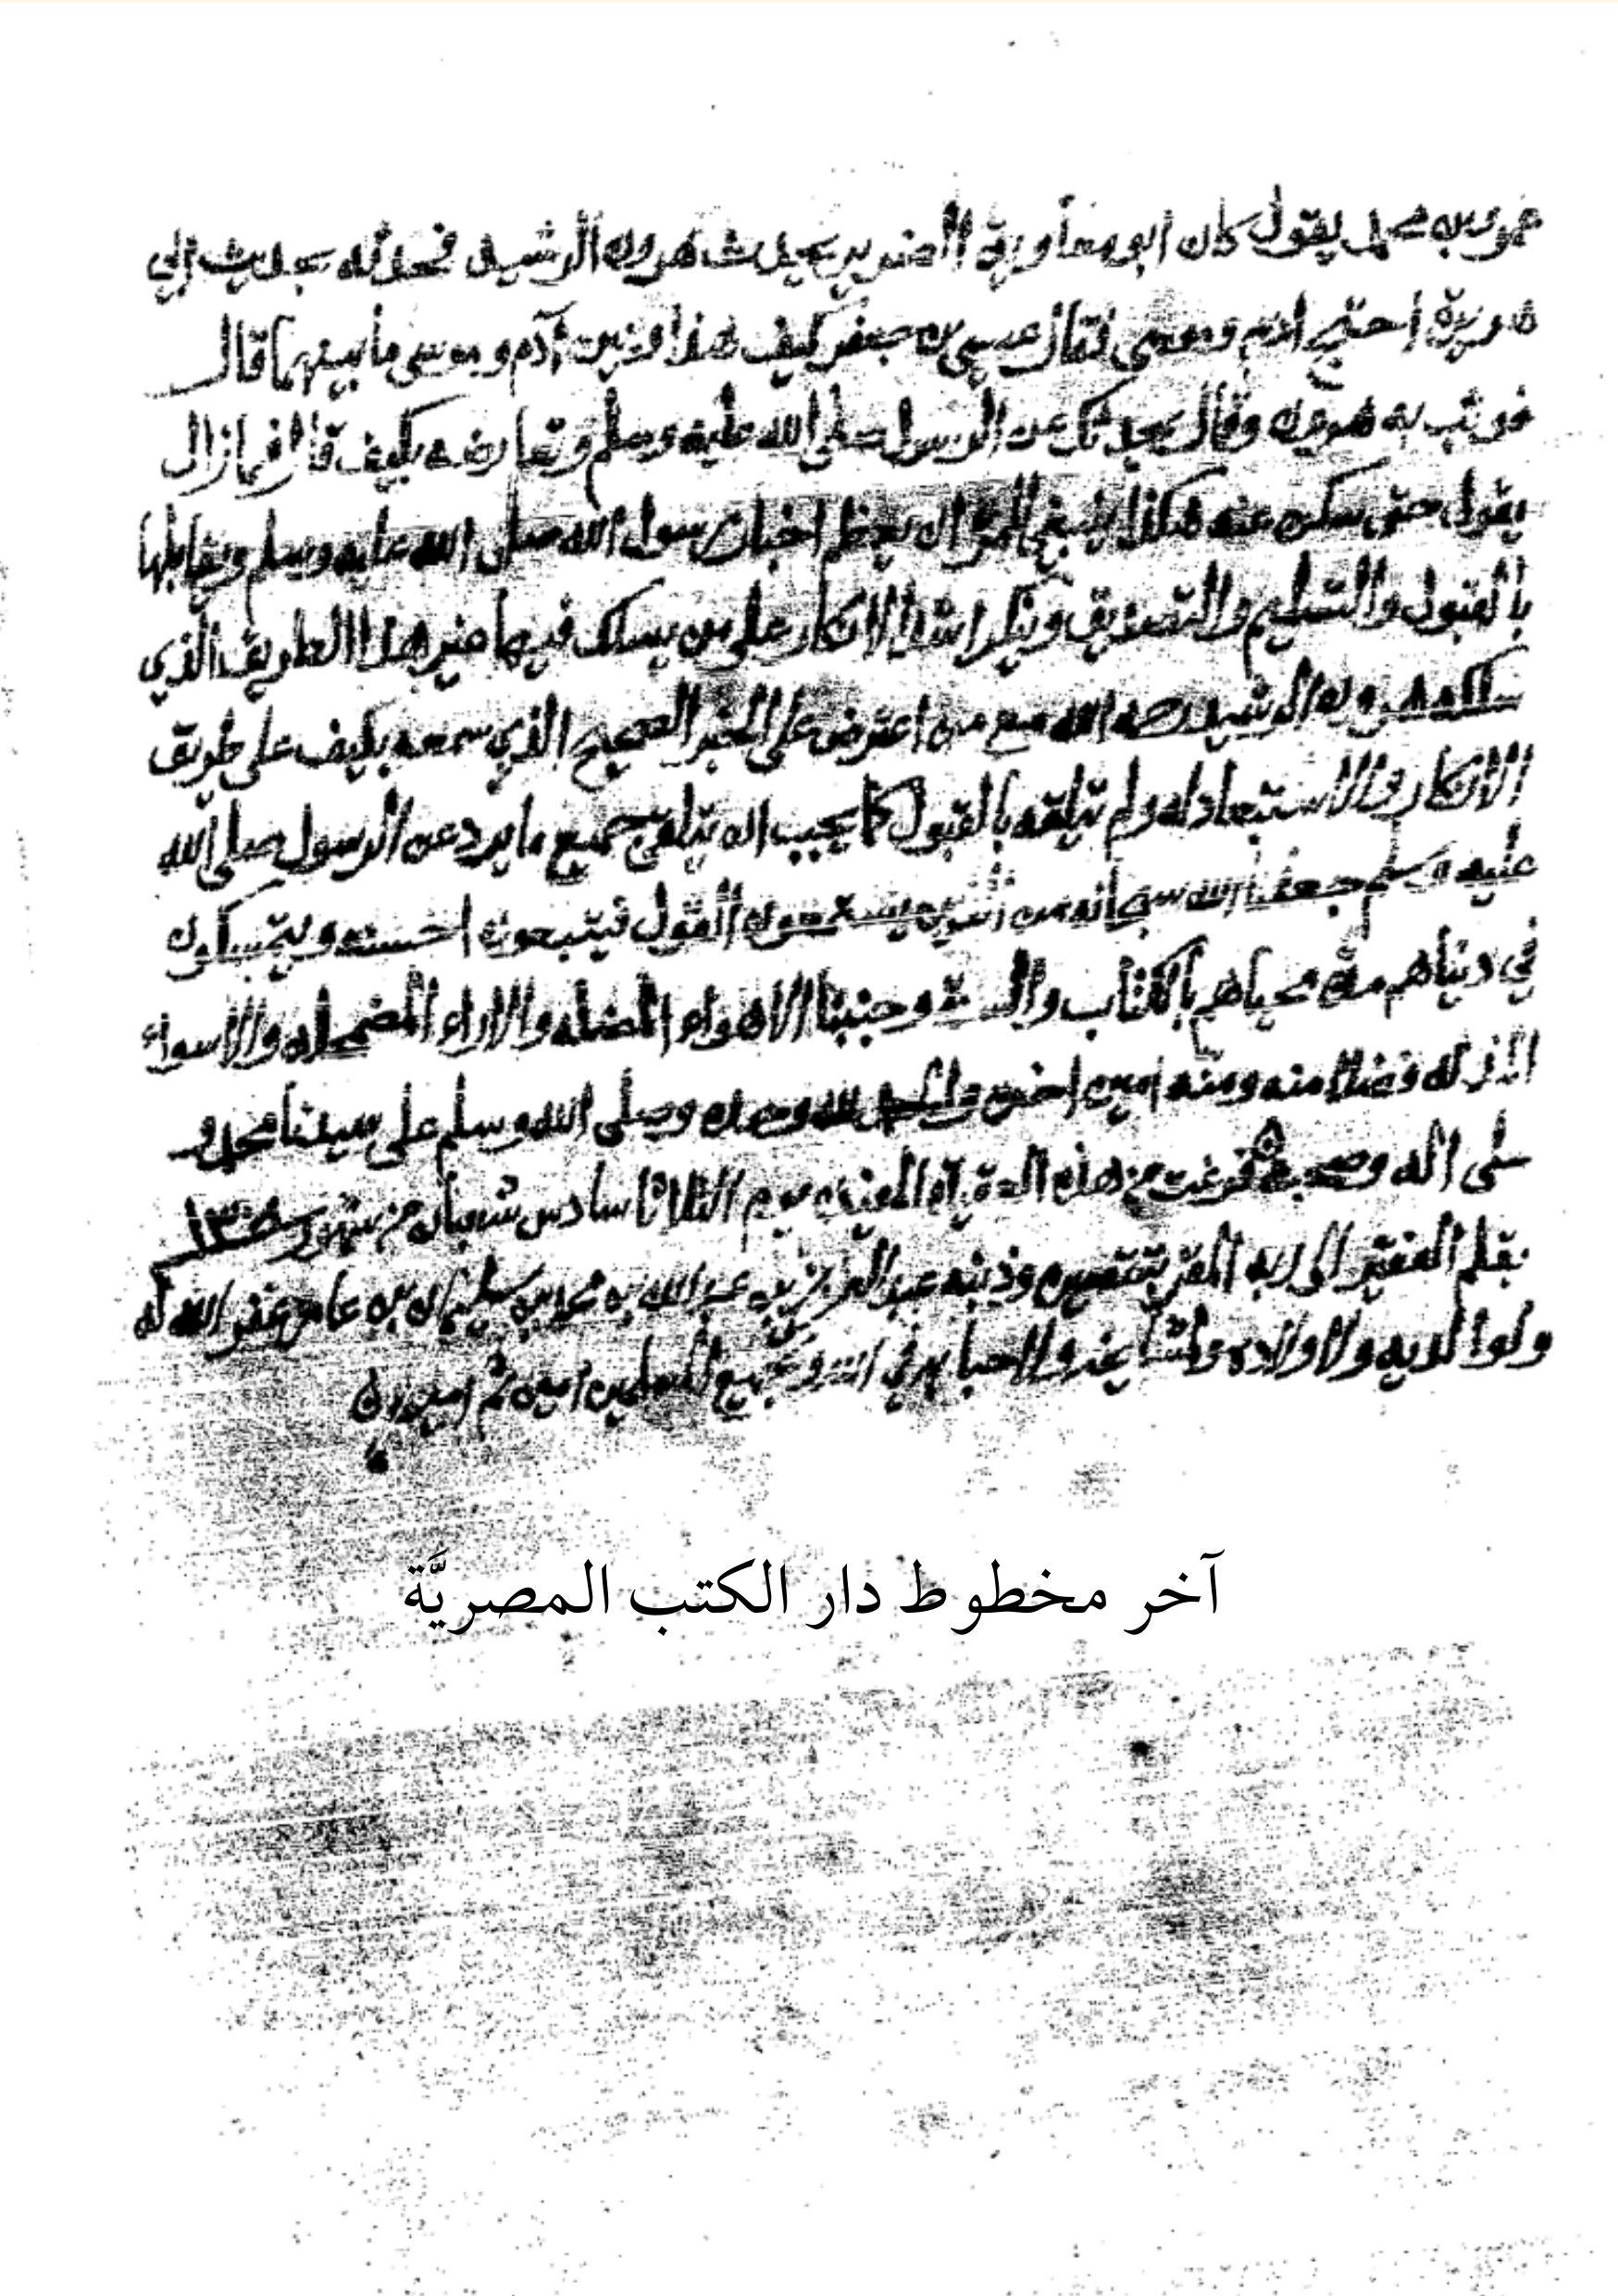 عمرو بن محمد يقول كان ابو معاوية الضرير يحدث هرون الرشيد فحدثه بحديث ابي
هريرة احتج ادم وموسى فقال عيسى بن جعفر كيف هذا وبين آدم وموسى ما بينهما قال
فوثب به هرون وقال يحدثك عن الرسول صلى الله عليه وسلم وتعارضه بكيف قال فما زال
يقول حتى سكن عنه هكذا ينبغي للمرء ان يعظم اخبار رسول الله صلى الله عليه وسلم ويقابلها
بالقبول والتسليم والتصديق وينكر اشد الانكار على من يسلك فيها غير هذا الطريق الذي
سلكه هرون الرشيد رحمه الله مع من اعترض على الخبر الصحيح الذي سمعه بكيف على طريق
الانكار والاستبعاد له ولم يتلقه بالقبول كما يجب ان يتلقى جميع ما يرد عن الرسول صلى الله
عليه وسلم جعلنا الله سبحانه من الذين يستمعون القول فيتبعون احسنه ويتمسكون
في دنياهم مدة محياهم بالكتاب والسنة وجنبنا الاهواء المضله والاراء المضمحله والاسواء
المذله فضلا منه ومنه امين والحمد لله وحده وصلى الله وسلم على سيدنا محمد و
على اله وصحبه فرغت من هذه يوم الثلاثا سادس شعبان من شهور سنة
بقلم الفقير الى ربه المقر بتقصيره وذنبه عبد العزيز بن عبد الله بن محمد بن سليمان بن عامر غفر الله له
ولوالديه ولاولاده ولمشايخه ولاحبابه في الله وجميع المسلمين امين ثم امين
آخر مخطوط دار الكتب المصريَّة